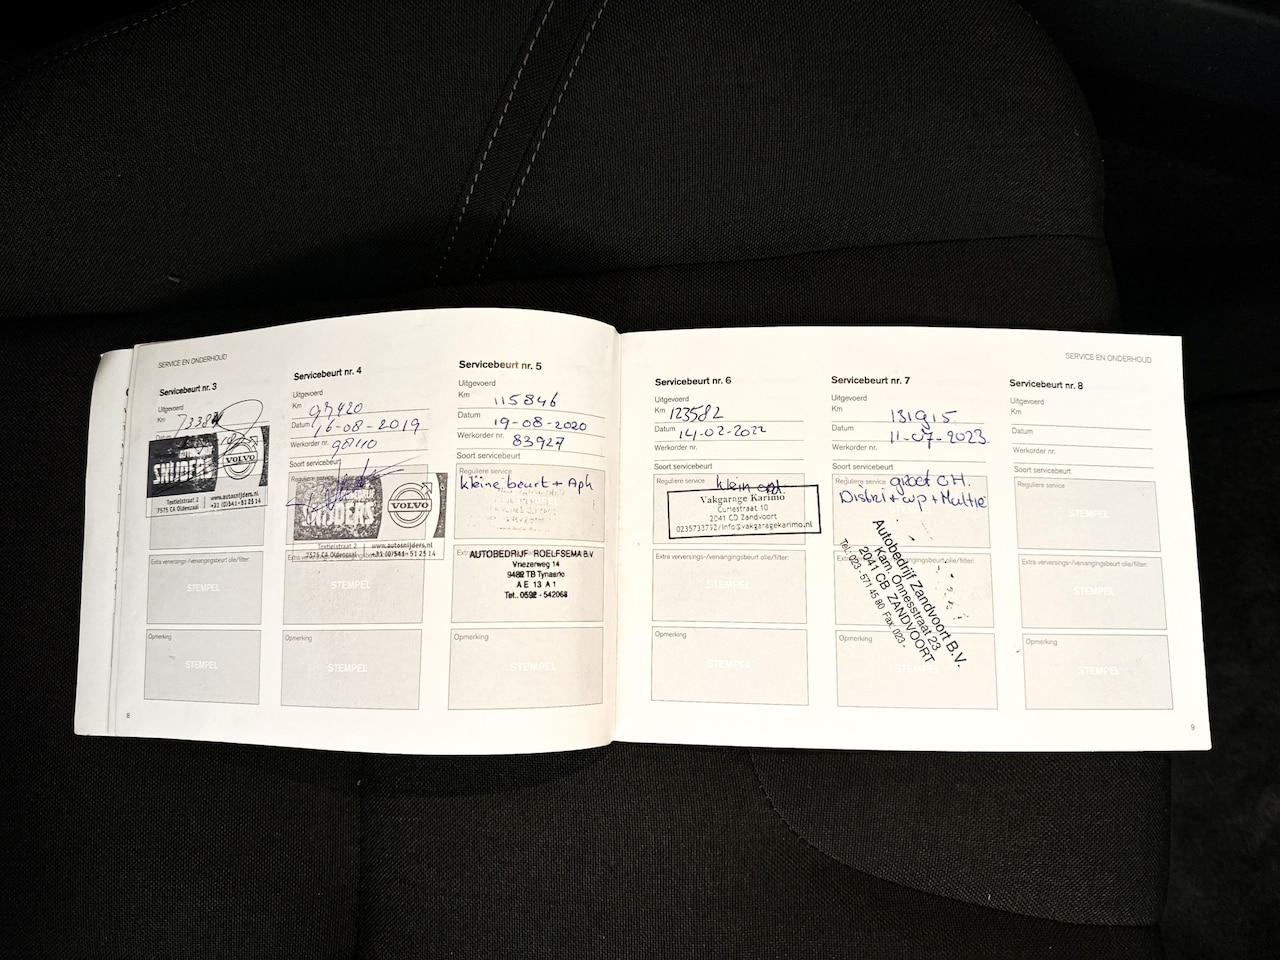 SERVICE EN ONDERHOUD
Servicebeurt nr. 3
Uitgevoerd
Km
Datum
SNIJDERS
VOLVO
Textielstraat 2
7575 CA Oldenzaal
www.autosnijders.nl
+31 (0)541-51 25 14
Extra verversings-/vervangingsbeurt olie/filter:
STEMPEL
Opmerking
STEMPEL
8
Servicebeurt nr. 4
Uitgevoerd
Km 97420
Datum 16-08-2019
Werkorder nr. 98110
Soort servicebeurt
Reguliere service
SNIJDERS
VOLVO
Textielstraat 2
7575 CA Oldenzaal
www.autosnijders.nl
+31 (0)541-51 25 14
STEMPEL
Opmerking
STEMPEL
Servicebeurt nr. 5
Uitgevoerd
Km 115846
Datum 19-08-2020
Werkorder nr. 83927
Soort servicebeurt
Reguliere service
kleine beurt + Aph
AUTOBEDRIJF ROELFSEMA B.V.
Vriezerweg 14
9482 TB Tynaarlo
A E 13 A 1
Tel. 0592 - 542068
Opmerking
STEMPEL
SERVICE EN ONDERHOUD
Servicebeurt nr. 6
Uitgevoerd
Km 123582
Datum 14-02-2022
Werkorder nr.
Soort servicebeurt
Reguliere service
klein
Vakgarage Karimo
Curiestraat 10
2041 CD Zandvoort
0235733792/info@vakgaragekarimo.nl
Extra verversings-/vervangingsbeurt olie/filter:
STEMPEL
Opmerking
STEMPEL
Servicebeurt nr. 7
Uitgevoerd
Km 131915
Datum 11-07-2023
Werkorder nr.
Soort servicebeurt
Reguliere service groot OH.
Distrei + wp + Multie
Autobedrijf Zandvoort B.V.
Kam. Onnesstraat 23
2041 CB ZANDVOORT
Tel.: 023 - 571 45 80 Fax: 023 -
STEMPEL
Opmerking
STEMPEL
Servicebeurt nr. 8
Uitgevoerd
Km
Datum
Werkorder nr.
Soort servicebeurt
Reguliere service
STEMPEL
Extra verversings-/vervangingsbeurt olie/filter:
STEMPEL
Opmerking
STEMPEL
9